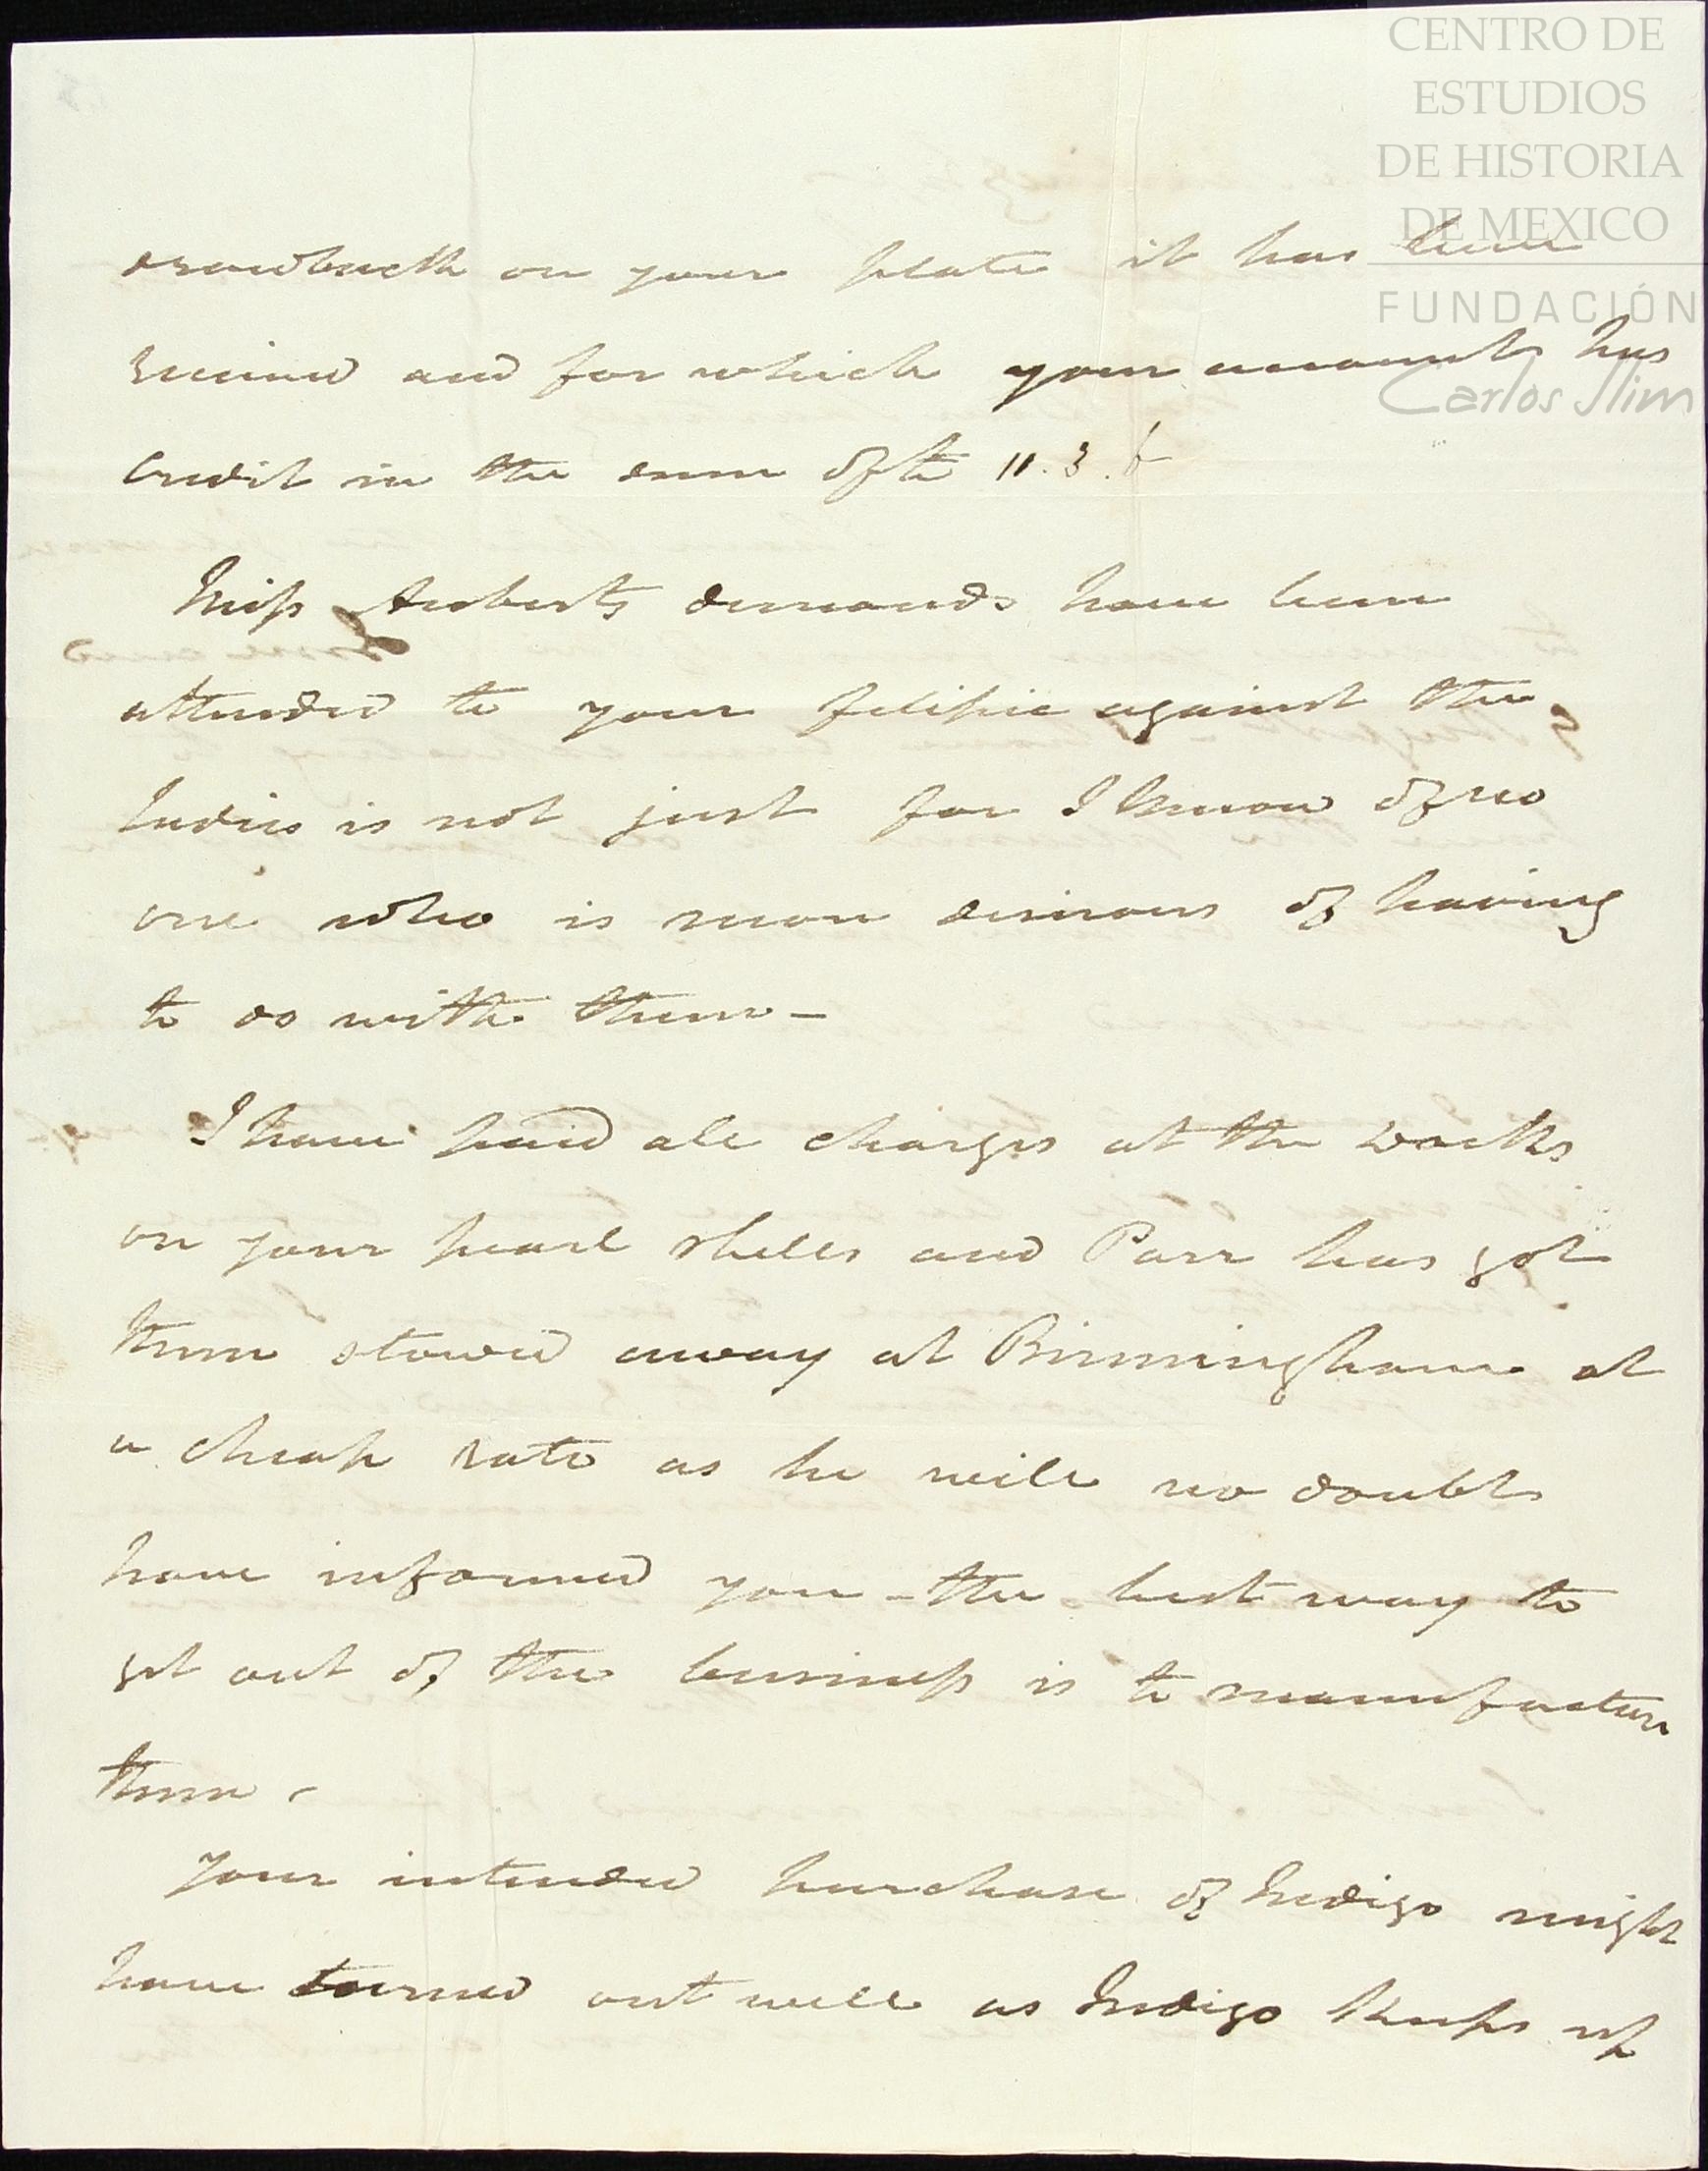 CENTRO DE
ESTUDIOS
DE HISTORIA
DE MEXICO
FUNDACIÓN
Carlos Slim
drawback on your plate it has been
received and for which your account has
credit in the sum of £ 11.3.6
Miss Auberts demands have been
attended to your against the
Indies is not just for I know of no
one who is more desirous of having
to do with them -
I have paid all charges at the Docks
on your pearl shells and Parr has got
them stowed away at Birmingham at
a cheap rate as he will no doubt
have informed you - the best way to
get out of the business is to manufacture
them -
Your intended purchase of Indigo might
have turned out well as Indigo keeps up